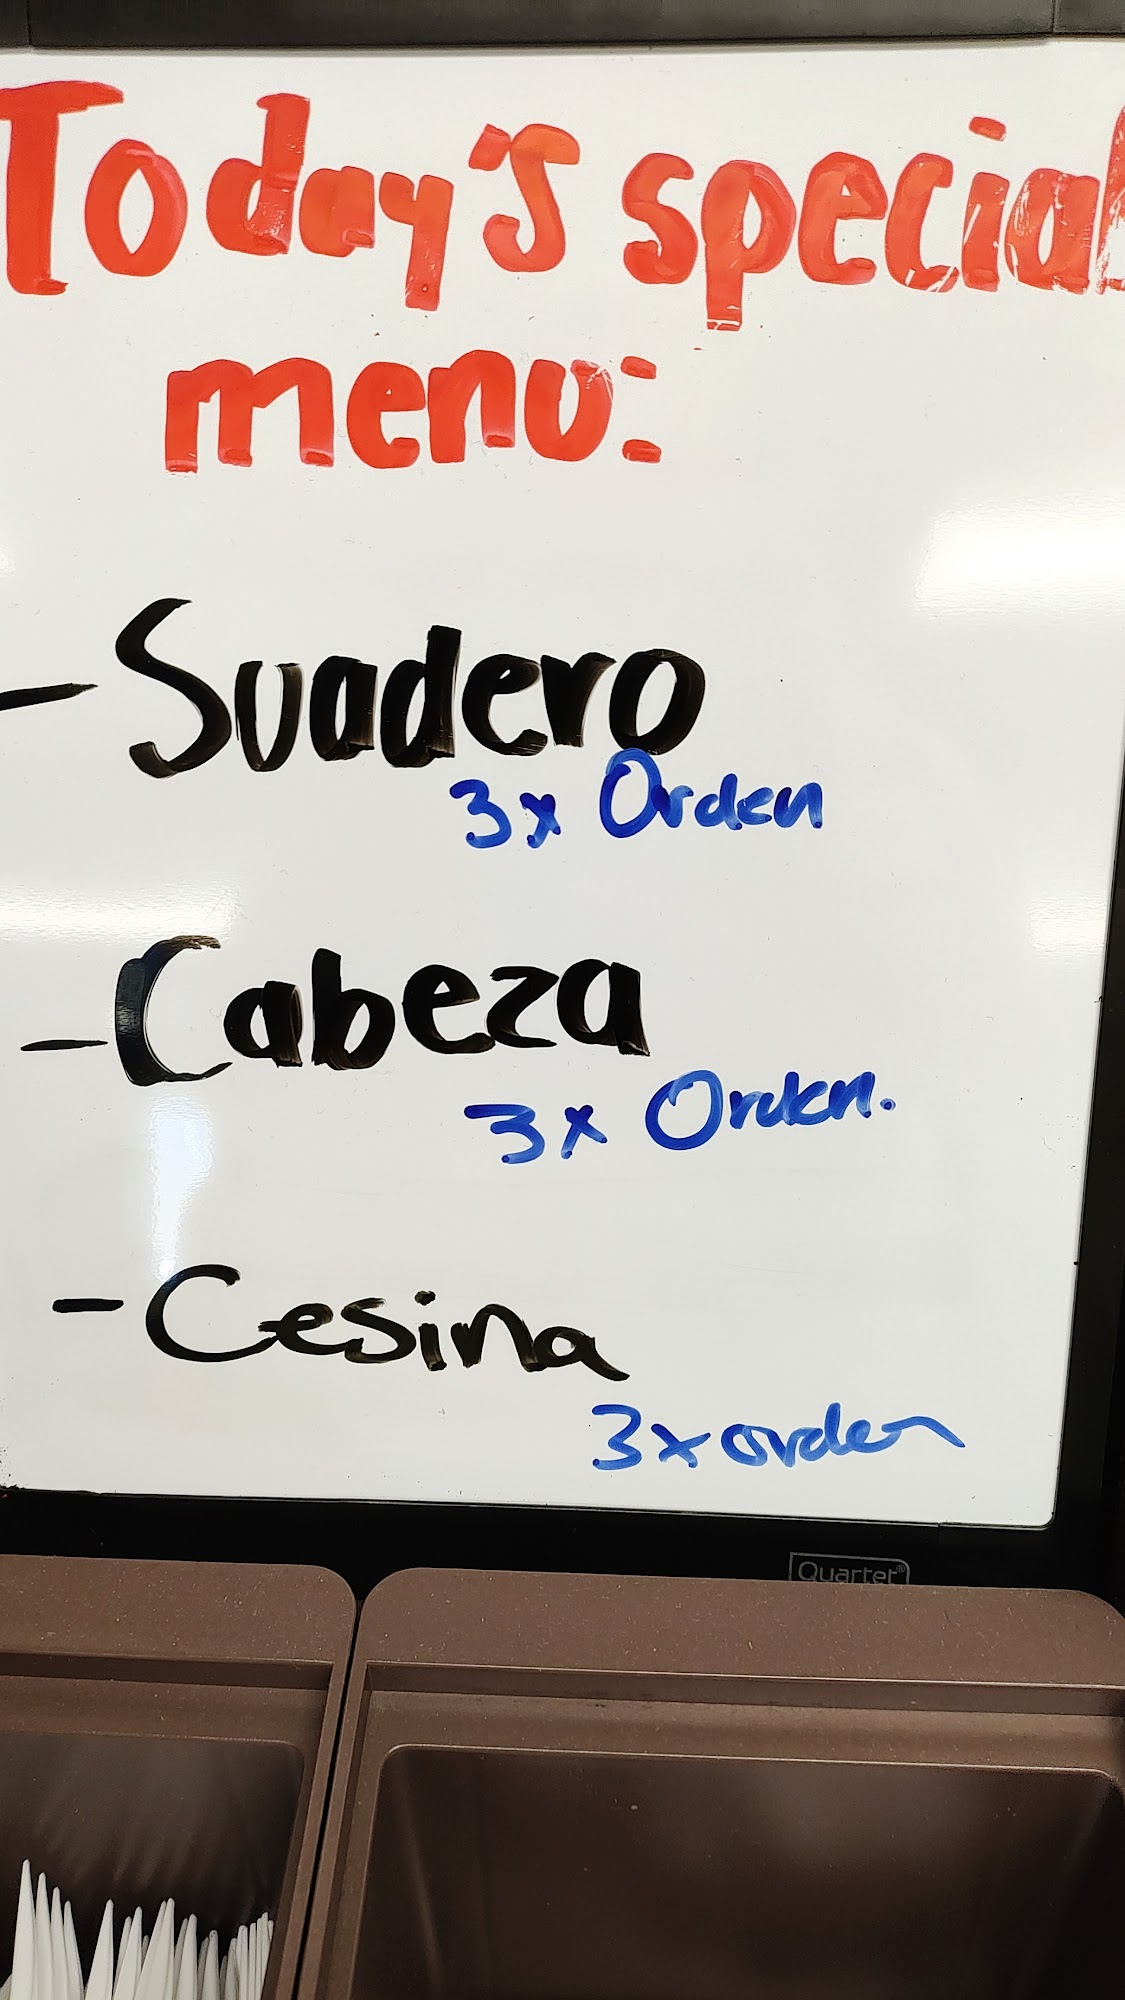 Today's special
menu:
- Suadero
3x Orden
- Cabeza
3x Orden.
- Cesina
3x orden
Quartet®